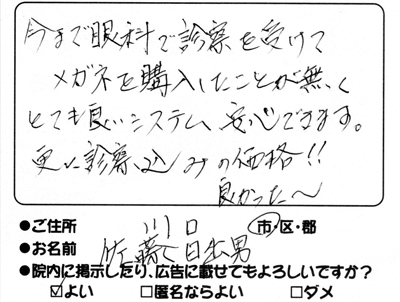 今まで眼科で診察を受けて
メガネを購入したことが無く
とても良いシステム、安心できます。
更に診察込みの価格!!
良かった〜
●ご住所 川口 市・区・郡
●お名前 佐藤 日出男
●院内に掲示したり、広告に載せてもよろしいですか?
☑よい □匿名ならよい □ダメ